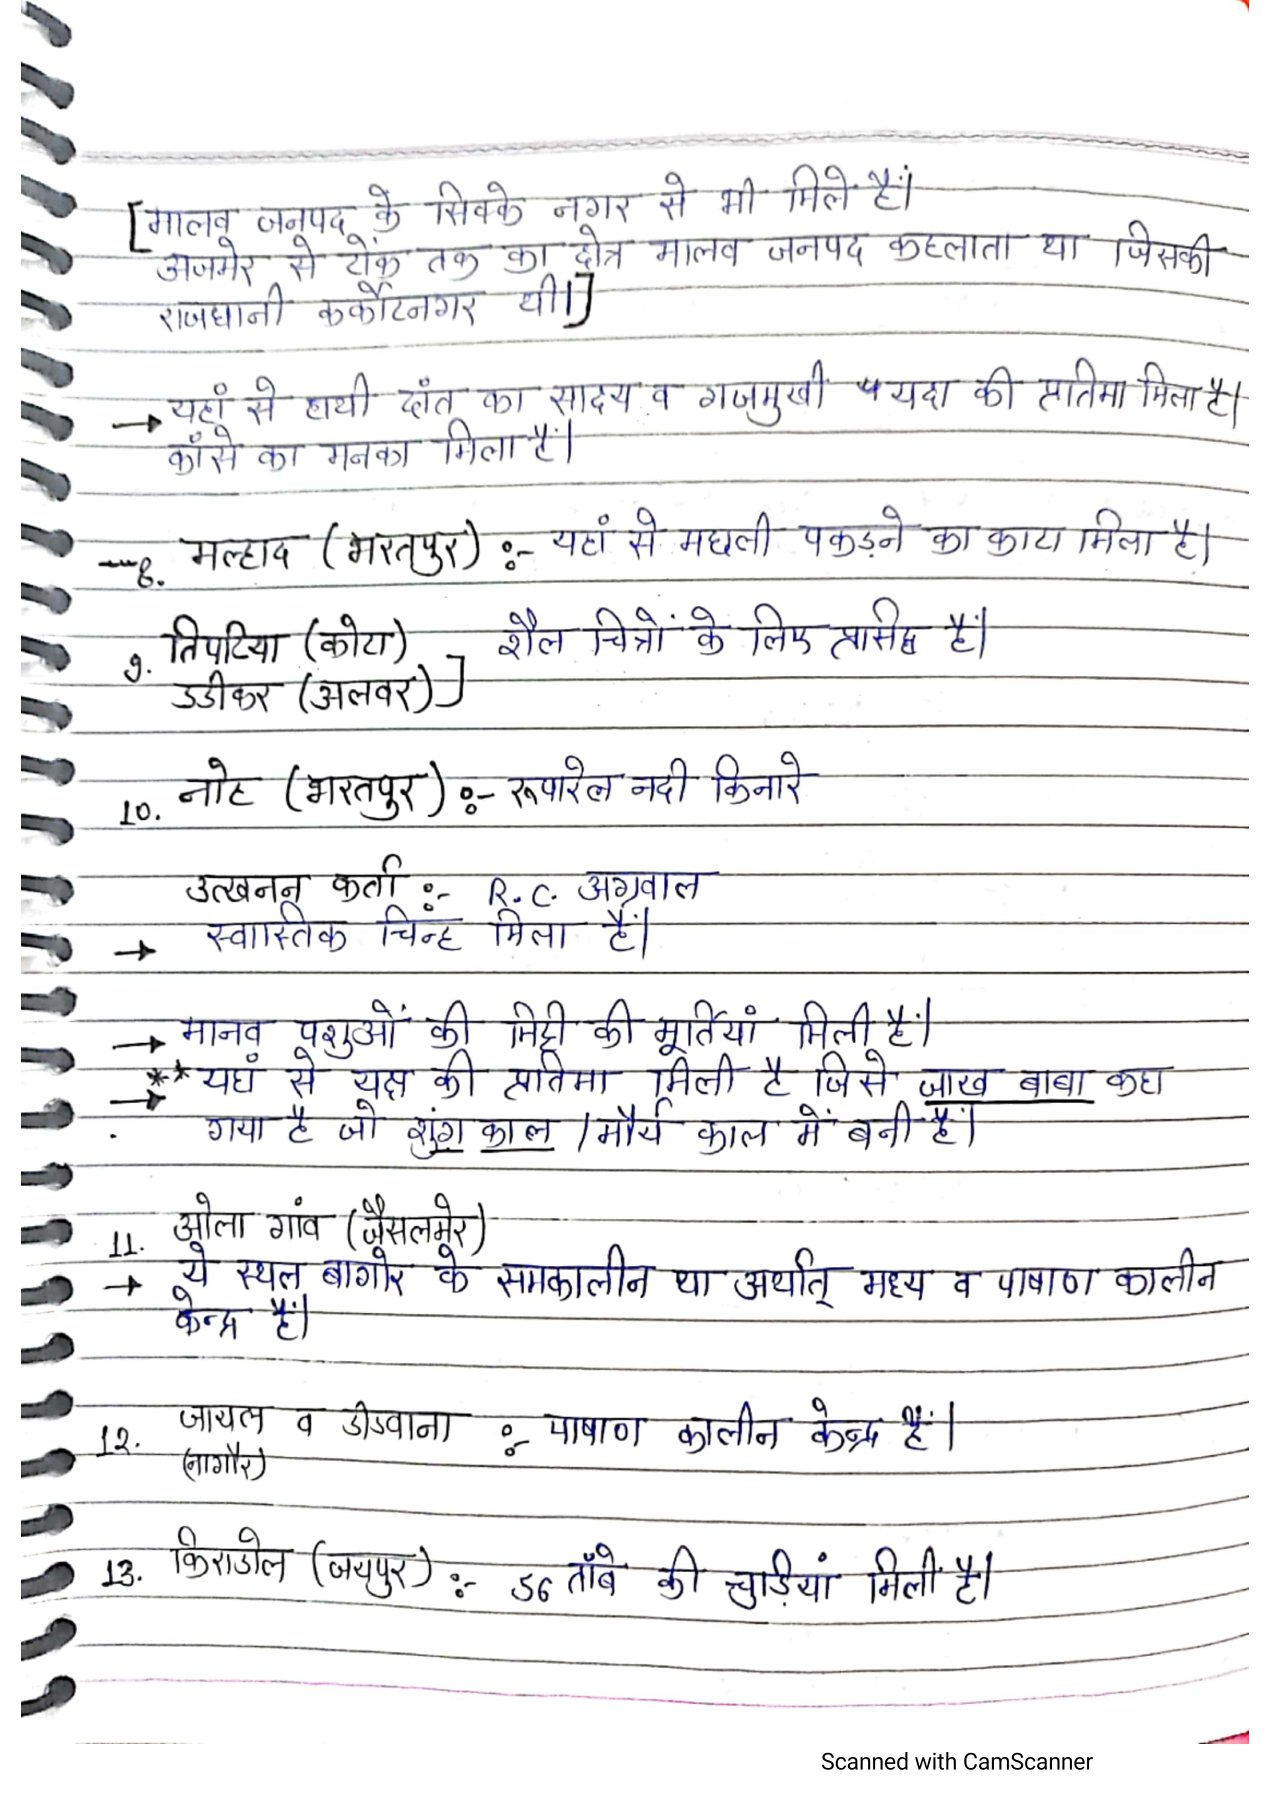 [मालव जनपद के सिक्के नगर से भी मिले हैं।
अजमेर से टोंक तक का क्षेत्र मालव जनपद कहलाता था जिसकी
राजधानी कर्कोटनगर थी।]
→ यहाँ से हाथी दांत का साक्ष्य व गजमुखी यक्ष की प्रतिमा मिला है।
काँसे का मनका मिला है।
8. मल्हाद (भरतपुर) :- यहां से मछली पकड़ने का काटा मिला है।
9. तिपटिया (कोटा) शैल चित्रों के लिए प्रसिद्ध हैं।
डडीकर (अलवर) ]
10. नोह (भरतपुर) :- रूपारेल नदी किनारे
उत्खनन कर्ता :- R.C. अग्रवाल
→ स्वास्तिक चिन्ह मिला हैं।
→ मानव पशुओं की मिट्टी की मूर्तियां मिली हैं।
→ ** यहां से यक्ष की प्रतिमा मिली है जिसे जाख बाबा कहा
गया है जो शुंग काल / मौर्य काल में बनी हैं।
11. ओला गांव (जैसलमेर)
→ ये स्थल बागोर के समकालीन था अर्थात् मध्य व पाषाण कालीन
केन्द्र हैं।
12. जायल व डीडवाना :- पाषाण कालीन केन्द्र हैं।
(नागौर)
13. किराडोल (जयपुर) :- 56 ताँबे की चुड़ियां मिली है।
Scanned with CamScanner